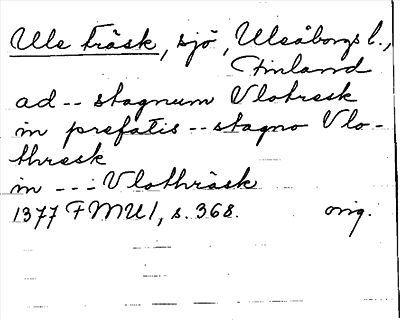 Ule träsk, sjö, Uleåborgs l.,
Finland
ad -- stagnum Vlotresk
in prefatis -- stagno Vlo-
thresk
in --- Vlothräsk
1377 FMU 1, s. 368. orig.